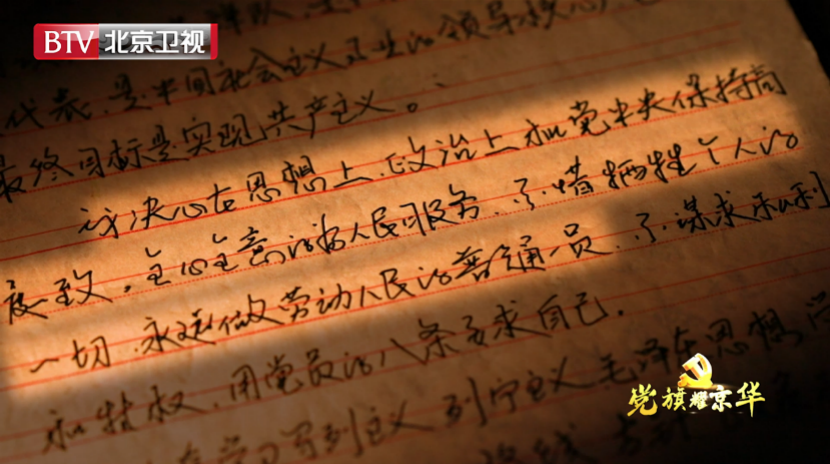 BTV 北京卫视
代表,是中国社会主义事业的领导核心,
最终目标是实现共产主义。
我决心在思想上、政治上和党中央保持高
度一致,全心全意的为人民服务、不惜牺牲个人的
一切,永远做劳动人民的普通一员,不谋求私利
和特权,用党员的八条要求自己。
学习马列主义 列宁主义 毛泽东思想
党旗耀京华